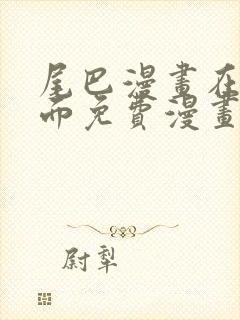 尾巴漫畫在
而免費漫畫
尉犁